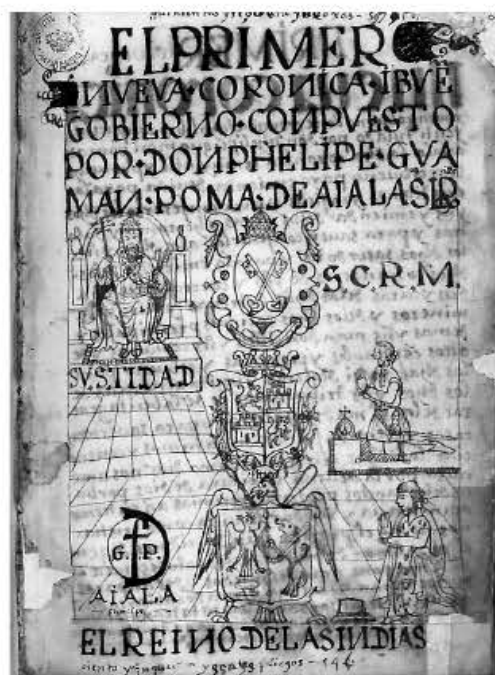 EL PRIMER
NVEVA·CORONICA·IBVE
GOBIERNO·CONPVESTO
POR·DON PHELIPE·GVA
MAN·POMA·DE AIALA
S.C.R.M.
SV.S.TIDAD
G. P.
AIALA
EL REINO DE LAS INDIAS